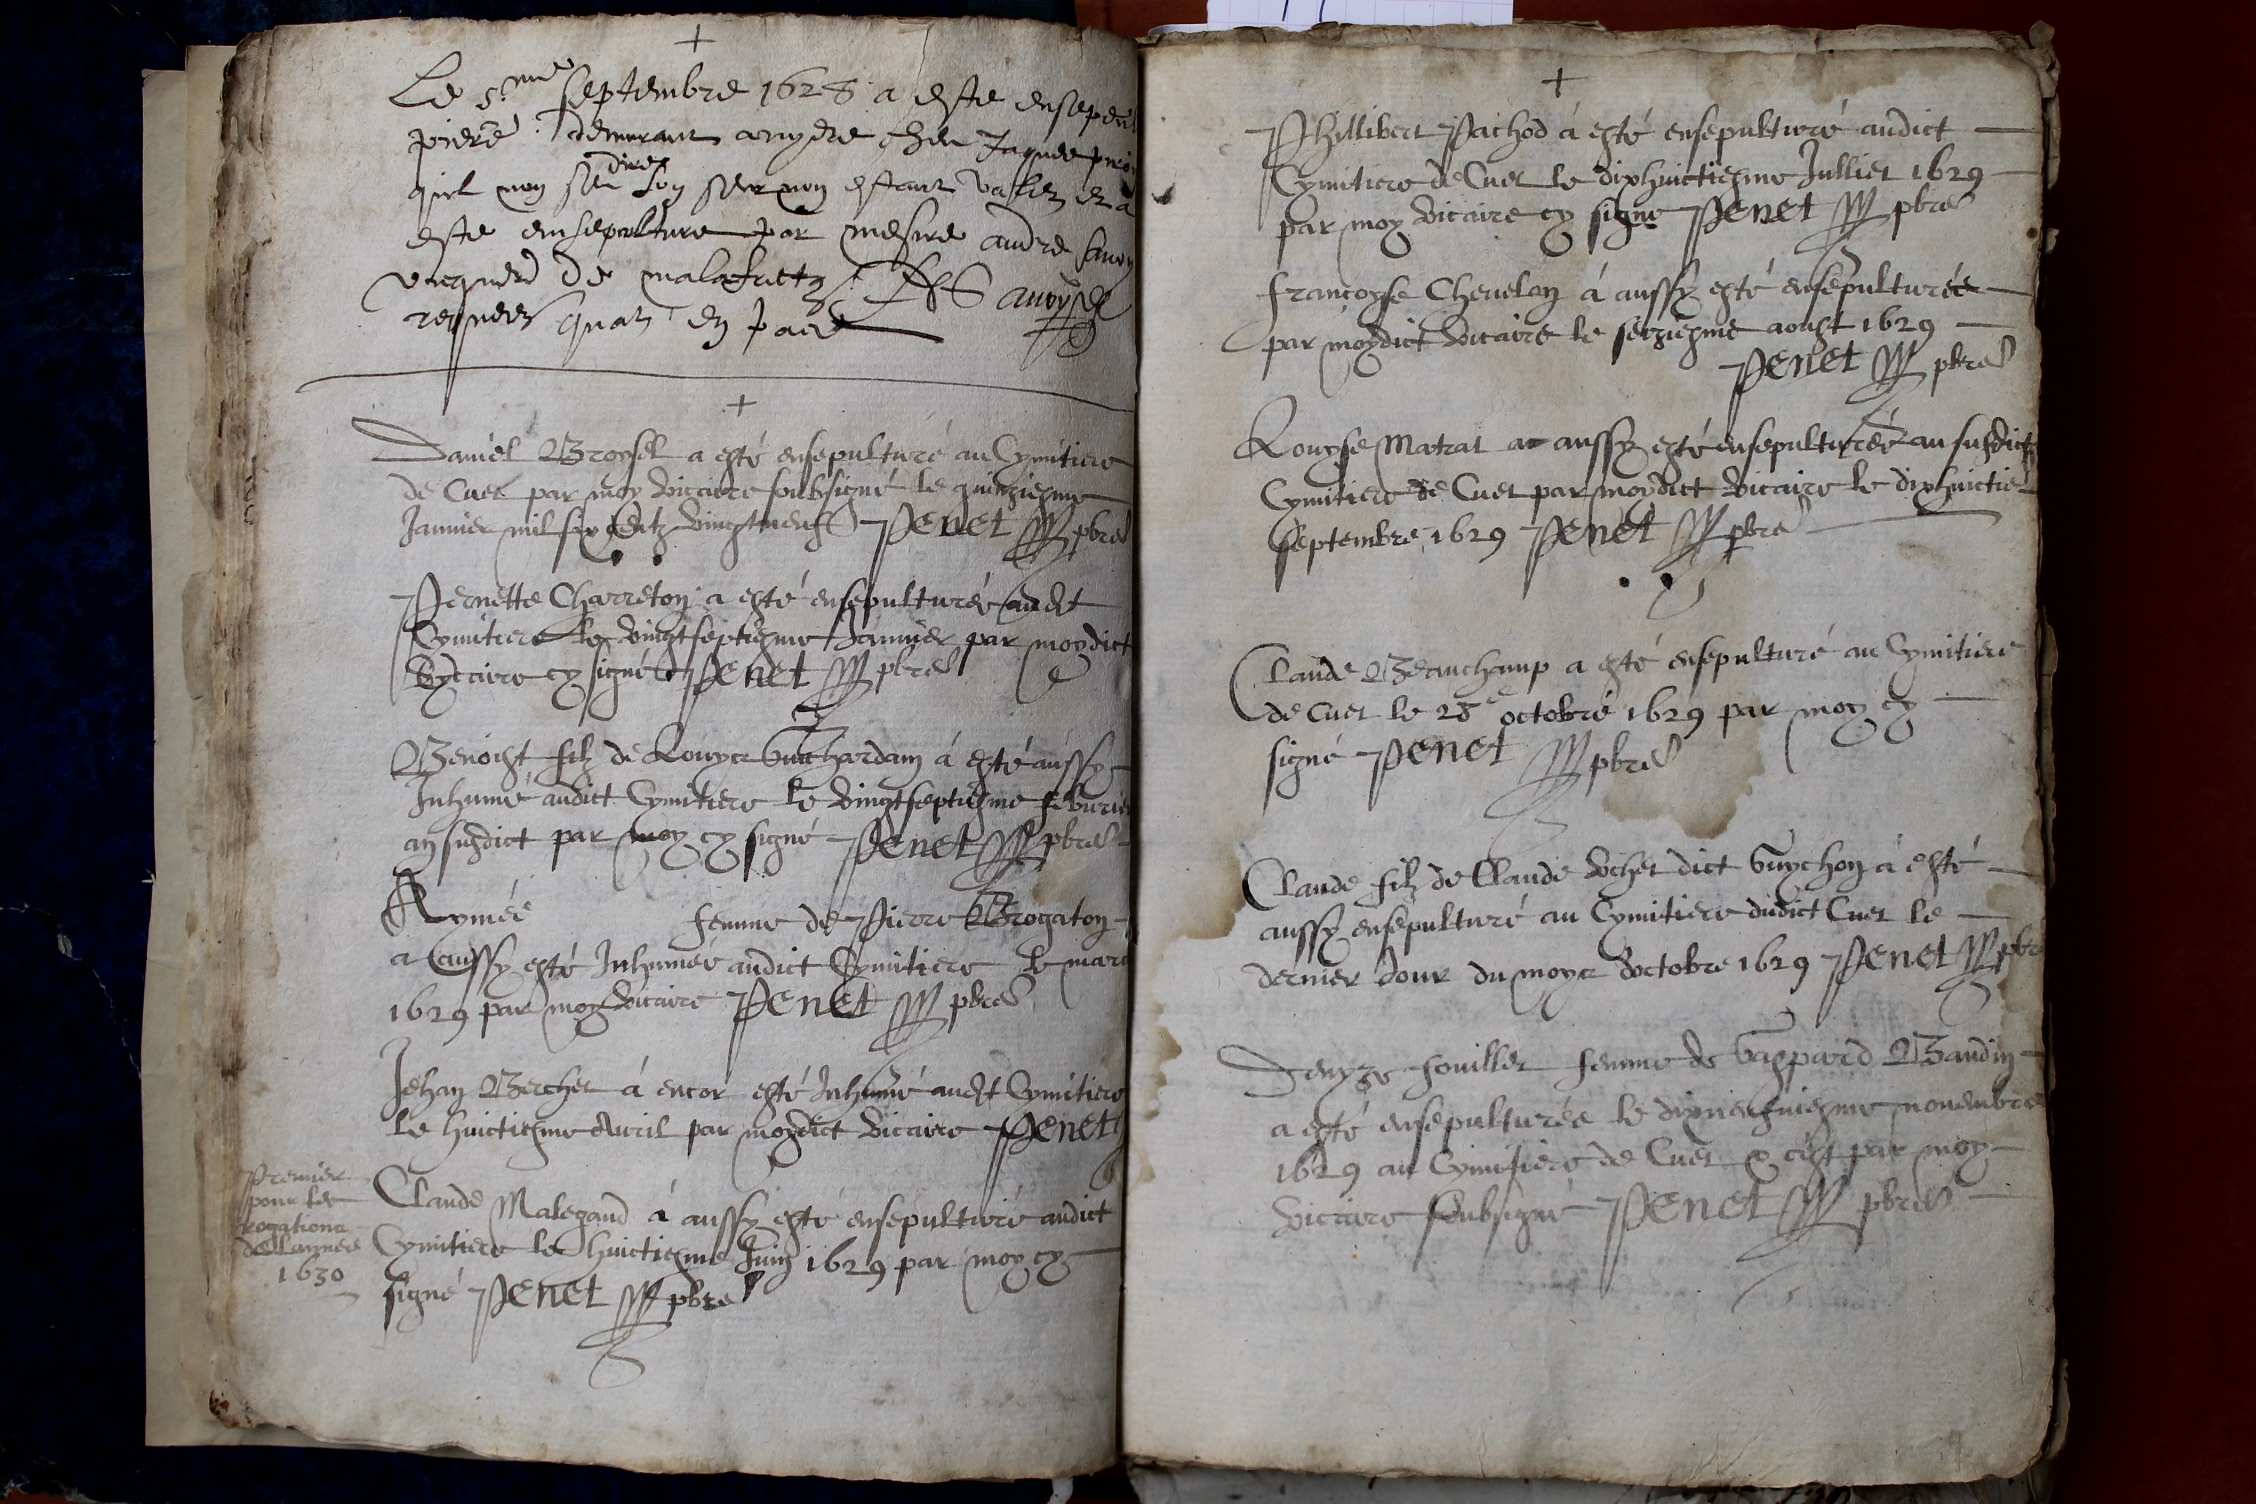 +
Le 5.me septembre 1628 a este ensepeult
piere demurant chez Jaques
quil non son
este ensepulture par messire andre
de malafretz Savoy
en paix
+
Daniel Broysel a esté ensepulturé au Cymitiere
de Cuet par moy vicaire soubsigné le quinziesme
Januier mil six centz vingtneufz Penet pbre
Pernette Charreton a esté ensepulturée audt
Cymitiere le vingtseptiesme Januier par moydict
Vycaire cy signé Penet pbre
Benoist filz de Louys Guichardan á esté aussy
Inhumé audict Cymitiere le vingtseptiesme feburier
an susdict par moy cy signé Penet pbre
Aymée femme de Pierre Brogaton
a aussy esté Inhumée audict Cymitiere le mars
1629 par moy vicaire Penet pbre
Jehan Bercher á encor esté Inhumé audt Cymitiere
le huictiesme Auril par moydict vicaire Penet
Premier
pour les
rogations
de lannée
1630
Claude Malegaud á aussy esté ensepulturé audict
Cymitiere le huictiesme Juin 1629 par moy cy
signé Penet pbre
+
Phillibert Pachod á esté ensepulturé audict
Cymitiere de Cuet le dixhuictiesme Julliet 1629
par moy vicaire cy signe Penet pbre
françoyse Cheuelon á aussy esté ensepulturée
par moydict vicaire le seziesme aoust 1629
Penet pbre
Louyse Matrat a aussy esté ensepulturée au susdict
Cymitiere de Cuet par moydict vicaire le dixhuictie
septembre 1629 Penet pbre
Claude Beauchamp a esté ensepulturé au Cymitiere
de Cuet le 28e octobre 1629 par moy cy
signé Penet pbre
Claude filz de Claude Vochet dict Guychon á esté
aussy ensepulturé au Cymitiere dudict Cuet le
dernier Jour du moys doctobre 1629 Penet pbre
Denyze souillet femme de Gaspard Baudin
a esté ensepulturée le dixneufuiesme nouembre
1629 au Cymitiere de Cuet & cest par moy
vicaire soubsigné Penet pbre